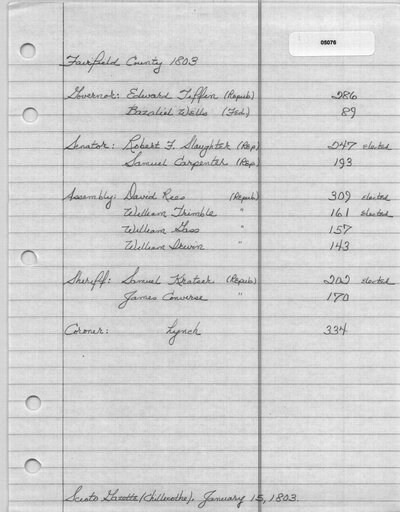 05076
Fairfield County 1803
Governor: Edward Tiffin (Repub) 286
Bazaliel Wells (Fed.) 89
Senator: Robert F. Slaughter (Rep) 247 elected
Samuel Carpenter (Rep) 193
Assembly: David Rees (Repub) 309 elected
William Trimble " 161 elected
William Gass " 157
William Irwin " 143
Sheriff: Samuel Kratzer (Repub) 202 elected
James Converse " 170
Coroner: Lynch 334
Scioto Gazette (Chillicothe), January 15, 1803.